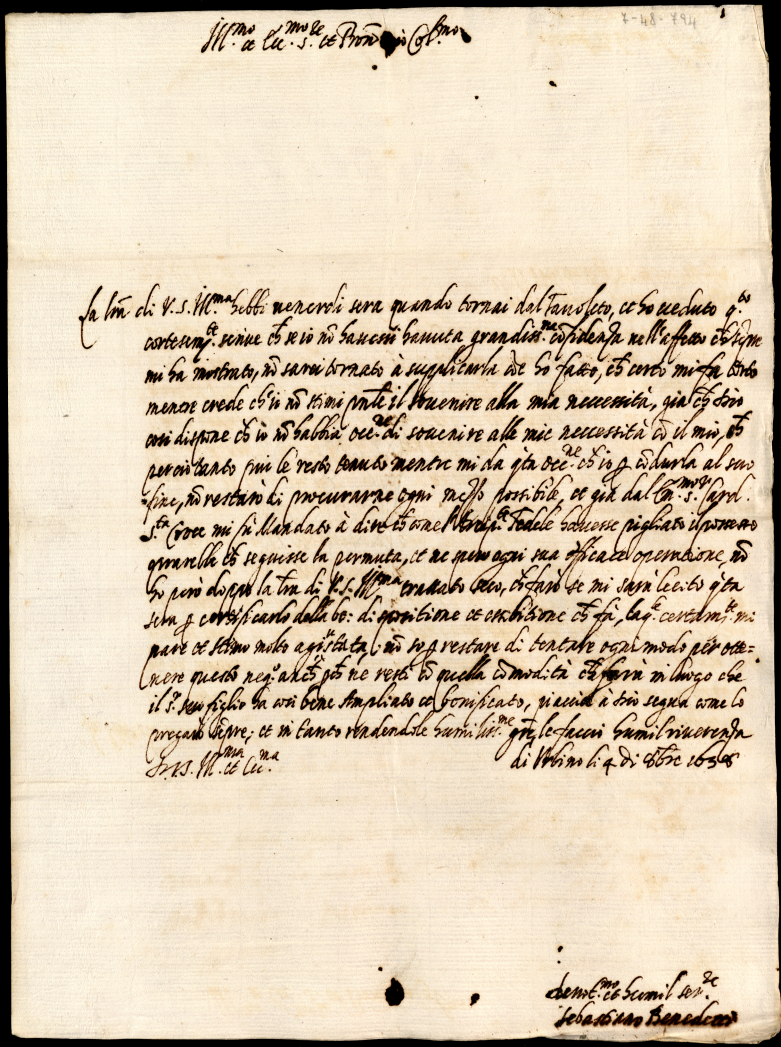 7-48-794
Ill.mo et Ecc.mo S.re et Pron Col.mo
La lra di V.S. Ill.ma hebbi venerdi sera quando tornai dal Tavoleto, et ho veduto q.to
cortesem.te scrive ch se io nõ havessi havuta grandiss.ma cõfidenza nell'affetto ch sempre
mi ha mostrato, nõ sarei tornato à supplicarla cõe ho fatto, ch certo mi fa torto
mentre crede ch'io nõ stimi il sovenire alla mia necessità, già ch Dio
cosi dispone ch io nõ habbia occ.ne di sovenire alle mie neccessità cõ il mio, ch
percio tanto piu le resto tenuto mentre mi da q̃ta occ.ne ch io p cõdurla al suo
fine, nõ restarò di procurarne ogni mezzo possibile, et già dal Em.mo S.r Card.
S.ta Croce mi fù Mandato à dire ch come Fedele havesse pigliato il possesso
ch seguisse la permuta, et ne spero ogni sua efficace operatione, nõ
ho però doppo la lra di V.S. Ill.ma trattato seco, ch farò se mi sarà lecito q̃ta
sera p certificarlo della bo: dispositione et essibitione ch fà, la q.le certam.te mi
pare et stimo molto agiustata; nõ so p restare di tentare ogni modo per otte=
nere questo neg.o anch pch ne resti cõ quella cõmodità ch farà in luogo che
il S.r suo figlio ha cosi bene Ampliato et bonificato, piaccia à Dio segua come lo
pregarò sempre; et in tanto rendendole humiliss.me gr̃e, le faccio humil riverenza
Di V.S. Ill.ma et Ecc.ma
di Urbino li 4 di 8bre 1638
Devot.mo et humil ser.re
Sebastiano Benedetti